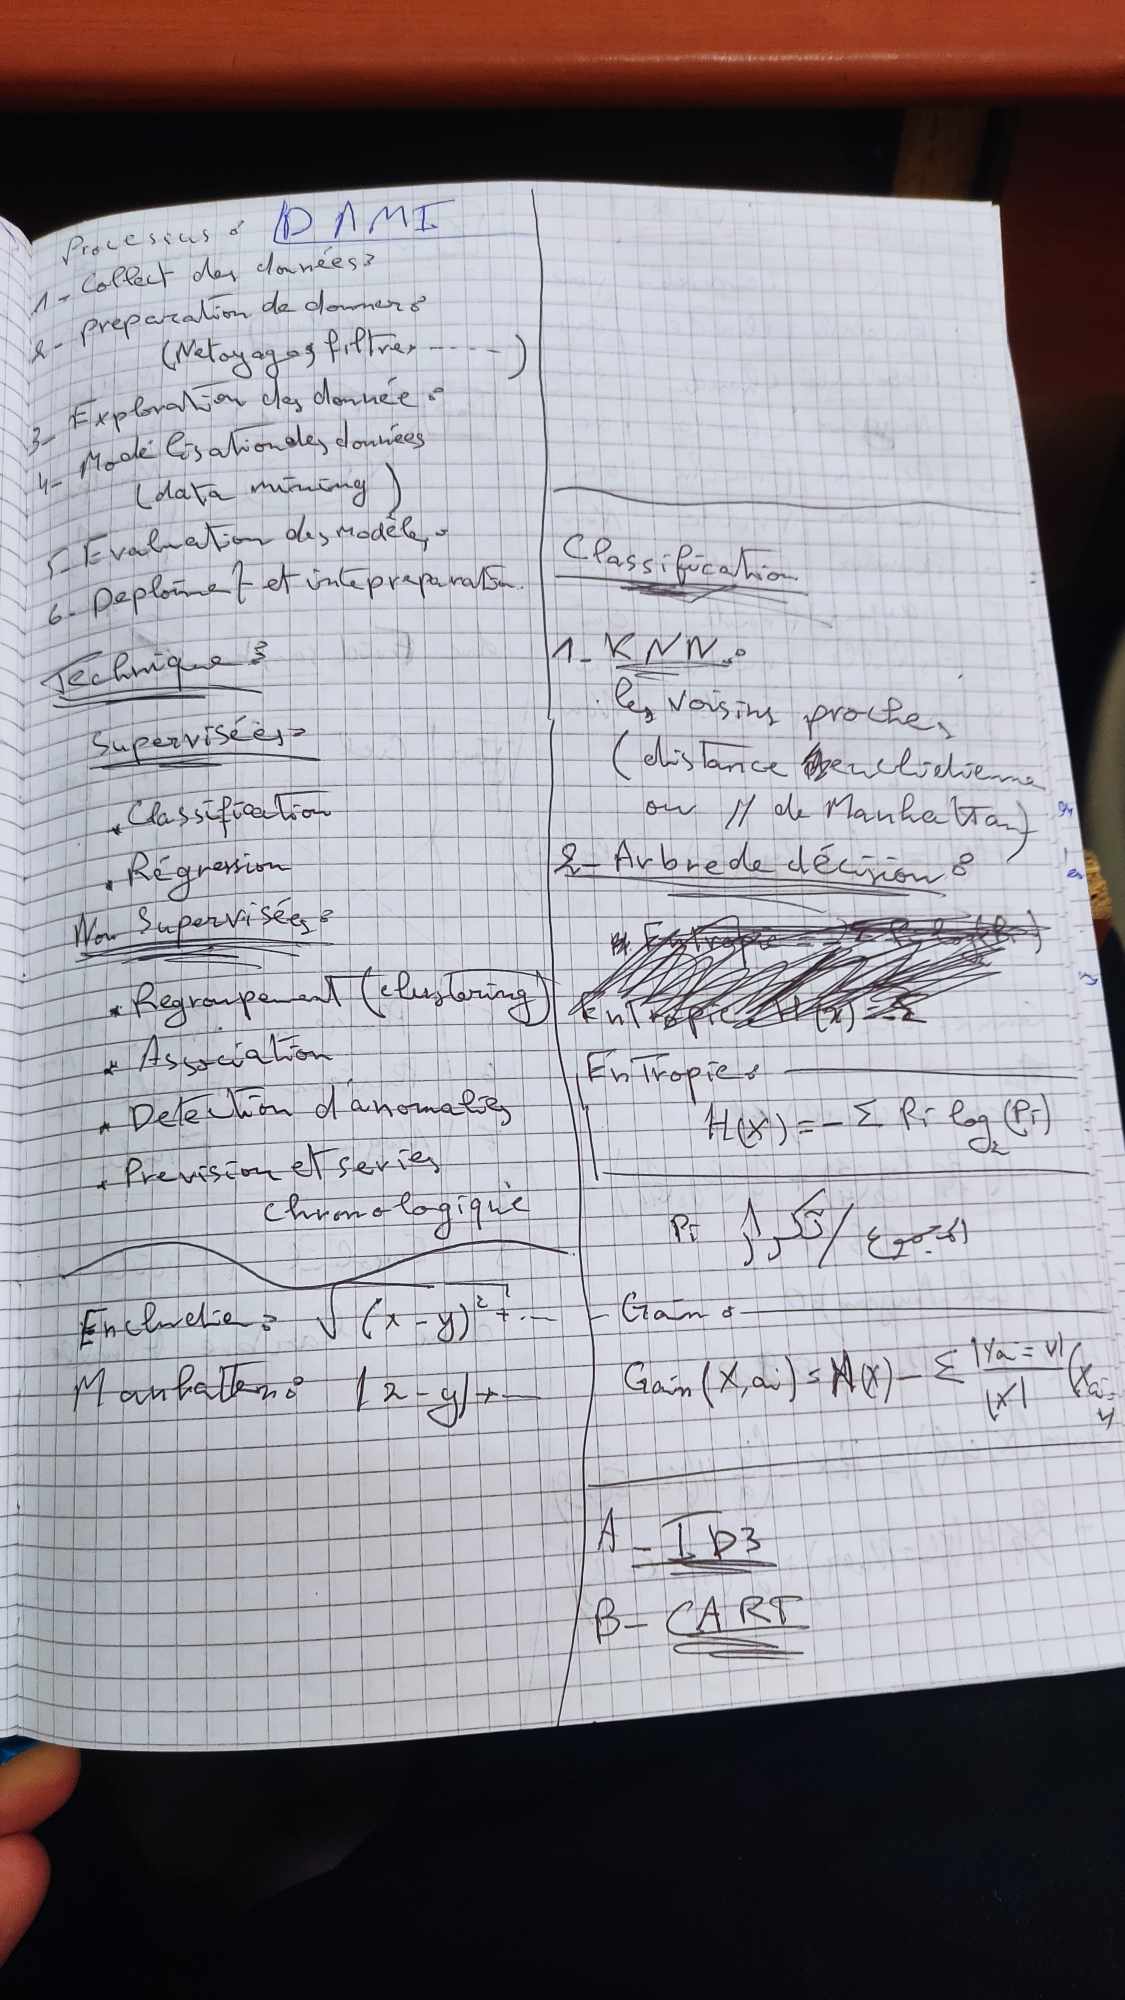 Processus : DAMI
1- Collect des données :
2- preparation de donner :
(Netoyages filtres ----- )
3- Exploration des donnée :
4- Modélisation des données
(data mining)
5- Evaluation des modèles :
6- Deploiment et
Technique :
Supervisées :
. Classification
. Régression
Non Supervisées :
* Regroupement (clustering)
* Association
* Detection d'anomalies
* Prevision et series
chronologique
Eucludie : √(x-y)²+...
Manhatten : |x-y|+...
Classification
1- KNN :
les voisins proches
(distance euclidienne
ou // de Manhattan)
2- Arbre de décision :
Entropie :
H(X) = - Σ Pi log₂(Pi)
Pi
Gain :
Gain(X, ai) = H(X) - Σ |Xa=v| / |X| (Xa=v
A - ID3
B - CART